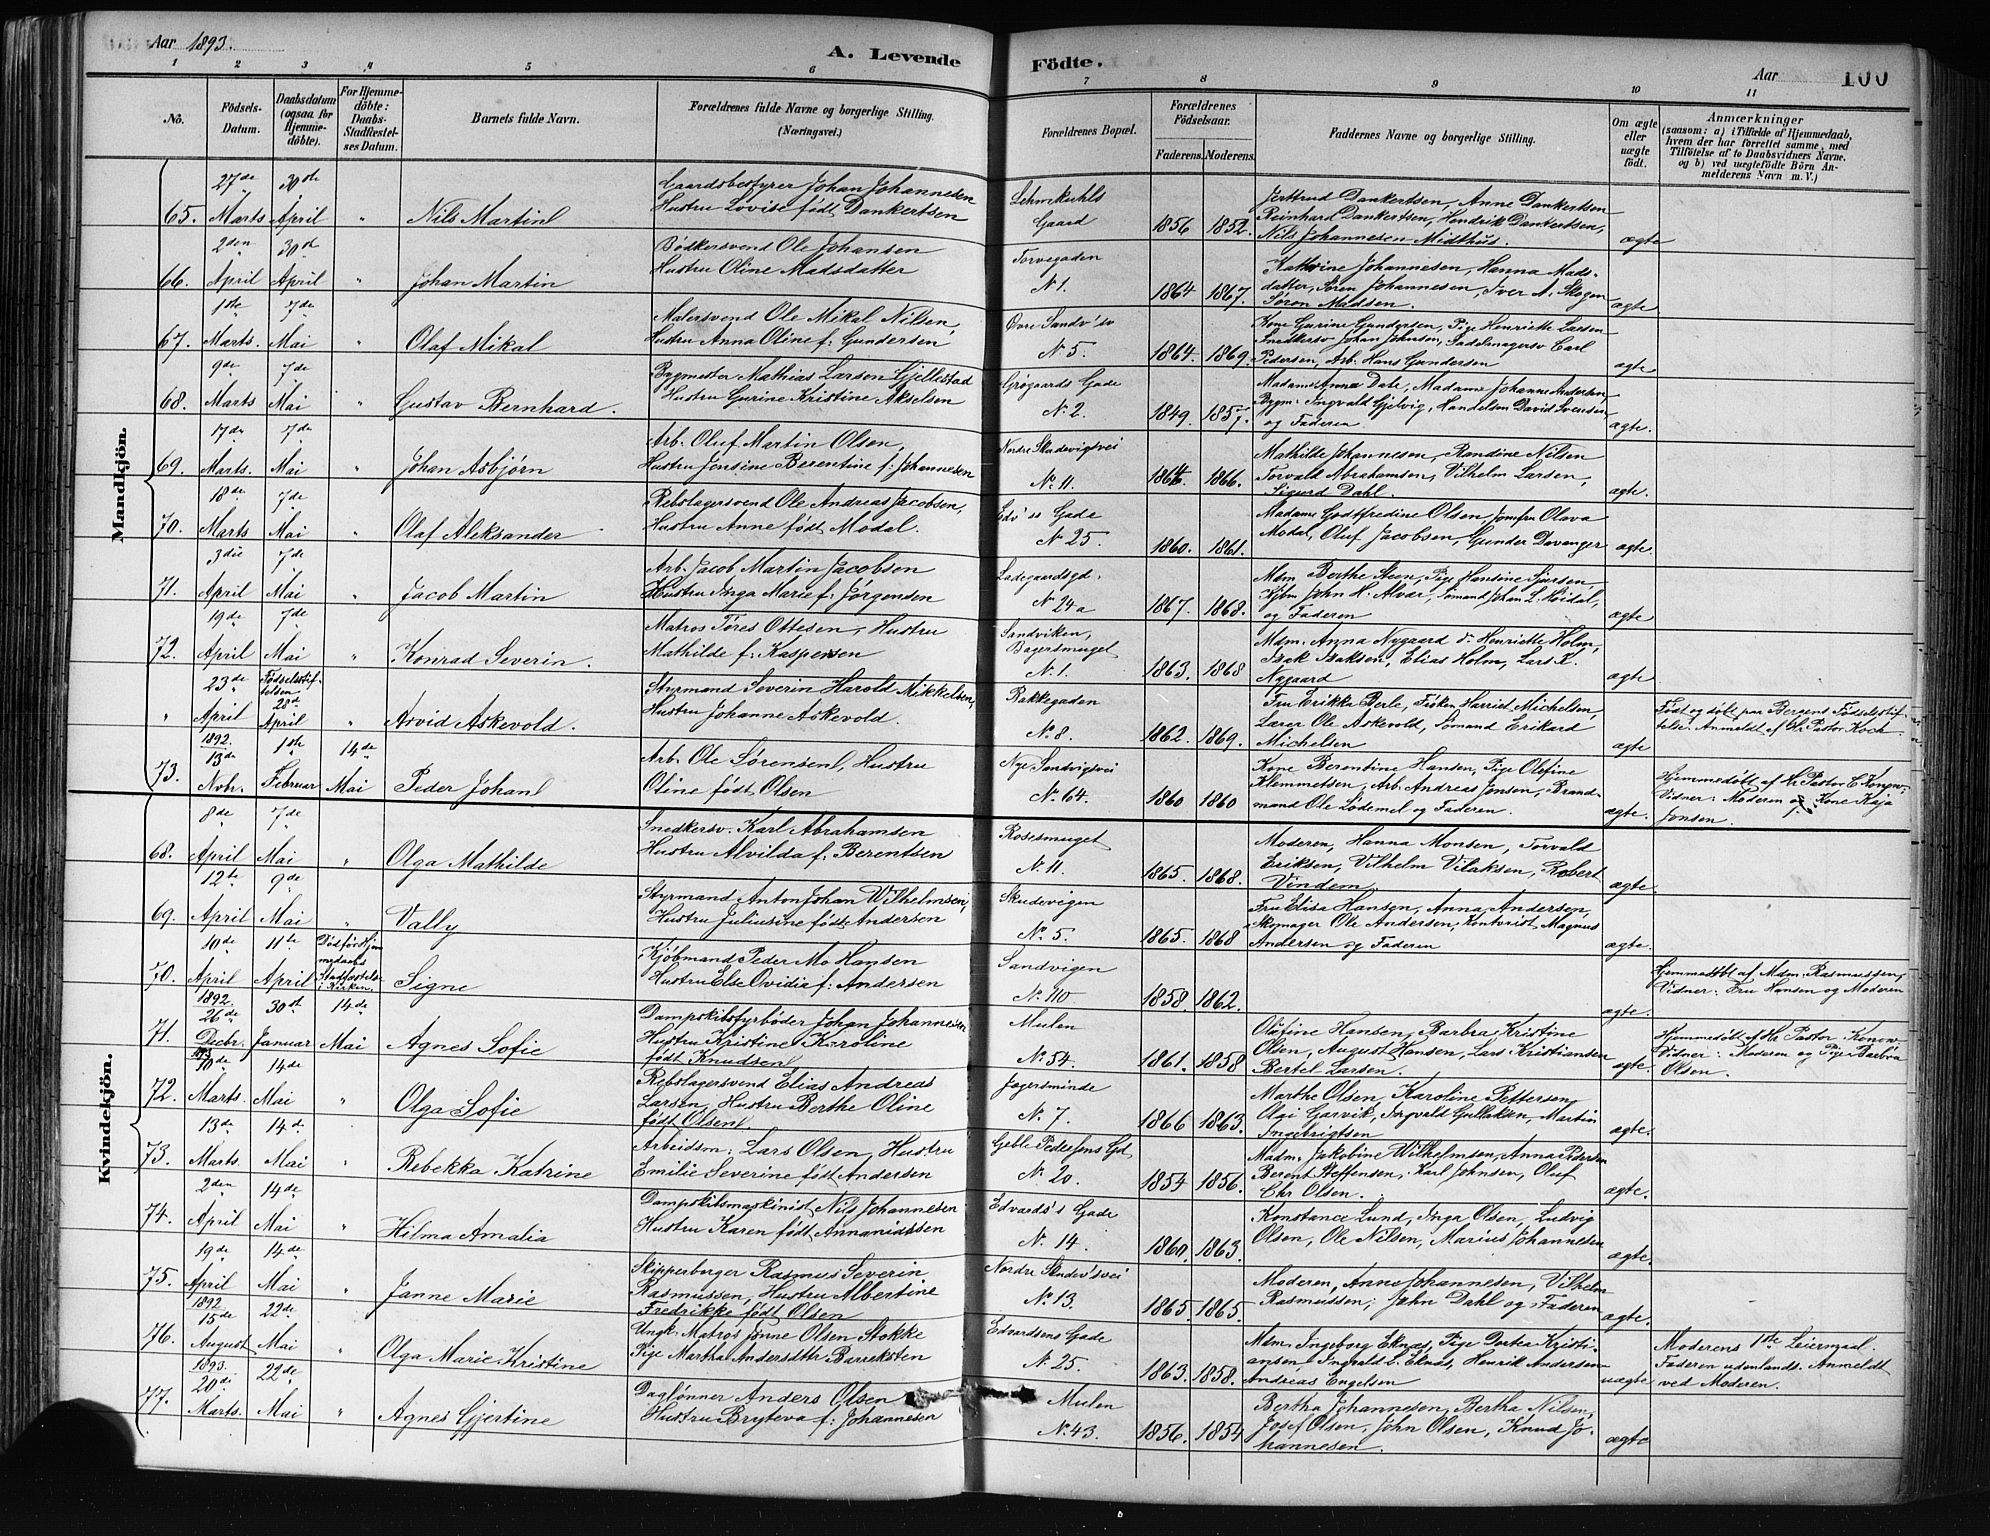 Aar 1893.
A. Levende Födte.
Aar
100
1 2 3 4 5 6 7 8 9 10 11
No.
Födsels-
Datum.
Daabsdatum
(ogsaa for
Hjemme-
döbte).
For Hjemme-
döbte:
Daabs-
Stadfæstel-
ses Datum.
Barnets fulde Navn.
Forældrenes fulde Navne og borgerlige Stilling.
(Næringsvei.)
Forældrenes Bopæl.
Forældrenes
Födselsaar.
Faderens. Moderens.
Faddernes Navne og borgerlige Stilling.
Om ægte
eller
uægte
født.
Anmærkninger
(saasom: a) i Tilfælde af Hjemmedaab,
hvem der har forrettet samme, med
Tilföielse af to Daabsvidners Navne,
og b) ved uægtefödte Börn An-
melderens Navn m. V.)
Mandkjön.
65. 27de Marts 30te April " Nils Martin
Gaardsbestyrer Johan Johannesen
Hustru Lovise født Dankertsen
Lehmkuhls
Gaard
1856 1852.
Jertrud Dankertsen, Anne Dankertsen
Reinhard Dankertsen, Hendrik Dankertsen,
Nils Johannesen Midthus.
ægte
66. 2den April 30te April " Johan Martin
Bødkersvend Ole Johansen
Hustru Oline Madsdatter
Torvegaden
No 1.
1864 1867.
Kathrine Johannesen, Hanna Mads-
datter, Søren Johannesen, Iver A. Skogen
Søren Madsen.
ægte
67. 1ste Marts. 7de Mai " Olaf Mikal
Malersvend Ole Mikal Nilsen,
Hustru Anna Oline f: Gundersen
Øvre Sandv's v
No 5.
1864. 1869.
Kone Gurine Gundersen, Pige Henriette Larsen
Snedkersv. Johan Johnsen, Sadelmagersv Carl
Pedersen, Arb. Hans Gundersen
ægte
68. 9de Marts 7de Mai " Gustav Bernhard.
Bygmester Mathias Larsen Gjellestad
Hustru Gurine Kristine Akselsen
Grøgaards Gade
No 2.
1849. 1857.
Madame Anna Dale, Madame Johanne Andersen
Bygm: Ingvald Gjelvig, Handelsm David Svensen
og Faderen
ægte.
69. 17de Marts. 7de Mai " Johan Asbjørn
Arb. Oluf Martin Olsen,
Hustru Jensine Berentine f: Johannesen
Nordre Skudevigsvei
No 11.
1864. 1866.
Mathilde Johannesen, Randine Nilsen
Torvald Abrahamsen, Vilhelm Larsen,
Sigurd Dahl.
ægte.
70. 18de Marts 7de Mai " Olaf Aleksander
Rebslagersvend Ole Andreas Jacobsen,
Hustru Anne født Modal.
Edv's Gade
No 25.
1860. 1861.
Madame Godtfredine Olsen, Jomfru Olava
Modal, Oluf Jacobsen, Gunder Davanger
ægte.
71. 3die April 7de Mai " Jacob Martin
Arb. Jacob Martin Jacobsen
Hustru Inga Marie f: Jørgensen
Ladegaardsgd.
No 24a
1867. 1868.
Mdm. Berthe Steen, Pige Hansine
John H. Alver, Sømand Johan L. Høidal,
og Faderen
ægte
72. 19de April 7de Mai " Konrad Severin.
Matros Tøres Ottesen, Hustru
Mathilde f: Kaspersen
Sandviken,
Bagersmuget
No 1.
1863. 1868
Mdm. Anna Nygaard d. Henriette Holm,
Isak Isaksen, Elias Holm, Lars K.
Nygaard
ægte
" 23de April Fødselsstif-
telsen 28de April " Arvid Askevold.
Styrmand Severin Harold Mikkelsen,
Hustru Johanne Askevold.
Bakkegaden
No 8.
1862. 1869.
Fru Erikka Berle, Frøken Harrid Michelsen,
Lærer Ole Askevold, Sømand Erikard
Michelsen
ægte
Født og døbt paa Bergens Fødselsstif-
telse. Anmeldt af Hr. Pastor Koch
73. 1892. 13de Novbr. 1ste Februar 14de Mai Peder Johan
Arb. Ole Sørensen, Hustru
Oline født Olsen
Nye Sandvigsvei
No 64.
1860 1860
Kone Berentine Hansen, Pige Olefine
Klemmetsen, Arb. Andreas Jonsen, Brand-
mand Ole Lødemel og Faderen.
ægte.
Hjemmedøbt af Hr Pastor C Konow.
Vidner: Moderen og Kone Kaja
Jonsen.
Kvindekjön.
68. 8de April 7de Mai " Olga Mathilde
Snedkersv. Karl Abrahamsen
Hustru Alvilda f: Berentsen
Rosesmuget
No 11.
1865. 1868.
Moderen, Hanna Monsen, Torvald
Eriksen, Vilhelm Vilaksen, Robert
Vindem
ægte
69. 12te April 9de Mai " Vally
Styrmand Anton Johan Wilhelmsen,
Hustru Juliusine født Andersen
Skudevigen
No 5.
1865. 1868
Fru Elisa Hansen, Anna Andersen,
Skomager Ole Andersen, Kontorist Magnus
Andersen og Faderen
ægte.
70. 10de April 11te April Død før Hjem-
medaabs
Stadfæstelse
i Kirken. Signe
Kjøbmand Peder Mo Hansen
Hustru Else Ovidia f: Andersen
Sandvigen
No 110
1858. 1862.
ægte.
Hjemmedøbt af Mdm. Rasmussen,
Vidner: Fru Hansen og Moderen
71. 1892. 26de Decbr. 30te Januar 14de Mai Agnes Sofie
Dampskibsfyrbøder Johan Johannesen
Hustru Kristine Karoline
født Knudsen
Mulen
No 54.
1861. 1858
Olufine Hansen, Barbra Kristine
Olsen, August Hansen, Lars Kristiansen
Bertel Larsen.
ægte.
Hjemmedøbt af Hr Pastor Konow
Vidner: Moderen og Pige Barbra
Olsen.
72. 1893 10de Marts. 14de Mai " Olga Sofie
Rebslagersvend Elias Andreas
Larsen, Hustru Berthe Oline
født Olsen
Jægersminde
No 7.
1866 1863.
Marthe Olsen, Karoline Pettersen,
Olai Garvik, Ingvald Gullaksen, Martin
Ingebrigtsen
ægte.
73. 13de Marts. 14de Mai " Rebekka Katrine
Arbeidsm: Lars Olsen, Hustru
Emilie Severine født Andersen
Geble Pedersens Gd
No 20.
1854 1856.
Madm. Jakobine Wilhelmsen, Anna Pedersen
Berent Steffensen, Karl Johnsen, Oluf
Chr Olsen.
ægte.
74. 2den April 14de Mai " Hilma Amalia
Dampskibsmaskinist Nils Johannesen
Hustru Karen født Annaniassen
Edvards's Gade
No 14.
1860. 1863.
Konstance Lund, Inga Olsen, Ludvig
Olsen, Ole Nilsen, Marius Johannesen
ægte.
75. 19de April 14de Mai " Janne Marie
Skipperborger Rasmus Severin
Rasmussen, Hustru Albertine
Fredrikke født Olsen
Nordre Skudev'svei
No 13.
1865. 1865.
Moderen, Anne Johannesen, Vilhelm
Rasmussen, John Dahl og Faderen
ægte.
76. 1892 15de August 22de Mai " Olga Marie Kristine
Ungk. Matros Jonne Olsen Stokke
Pige Martha Andersdttr Barreksten
Edvardsens Gade
No 25.
1863. 1858.
Mdm. Ingeborg Eknæs, Pige Dortea Kristi-
ansen, Ingvald L. Eknæs, Henrik Andersen
Andreas Engelsen
uægte
Moderens 1ste Leiermaal.
Faderen udenlands. Anmeldt
ved Moderen.
77. 1893. 20de Marts. 22de Mai " Agnes Gjertine
Daglønner Anders Olsen
Hustru Bryteva f: Johannesen
Mulen
No 43.
1856. 1854
Bertha Johannesen, Bertha Nilsen,
Josef Olsen, John Olsen, Knud Jo-
hannesen.
ægte